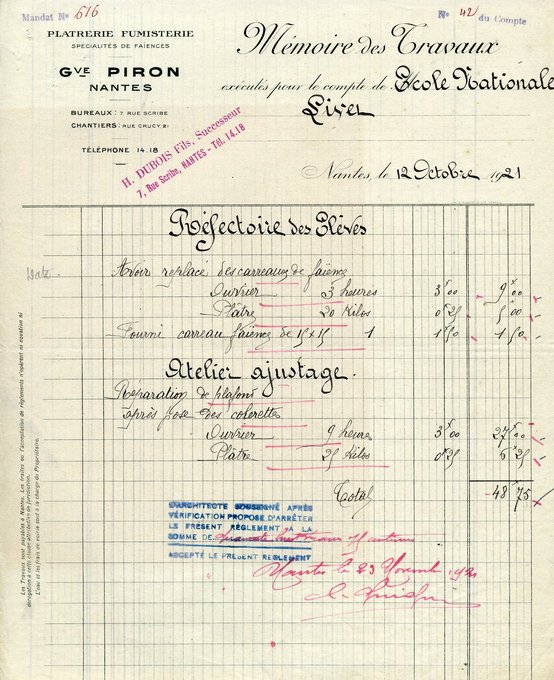 Mandat N° 616
N° 42 du Compte
PLATRERIE FUMISTERIE
SPÉCIALITÉS DE FAÏENCES
GVE PIRON
NANTES
BUREAUX: 7 RUE SCRIBE
CHANTIERS: RUE CRUCY 21
TÉLÉPHONE 14.18
H. DUBOIS Fils, Successeur
7, Rue Scribe, NANTES - Tel. 14.18
Mémoire des Travaux
exécutés pour le compte de Ecole Nationale
Livet
Nantes, le 12 Octobre 1921
Réfectoire des Elèves
Avoir replacé des carreaux de faïence
Ouvrier 3 heures 3f00 9f00
Plâtre 20 Kilos 0f25 5f00
Fourni carreau faïence de 15 x 15 1 1f50 1f50
Atelier ajustage.
Réparation de plafond
après pose des colerettes
Ouvrier 9 heures 3f00 27f00
Plâtre 25 Kilos 0f25 6f25
Total 48f75
L'ARCHITECTE SOUSSIGNÉ APRÈS
VÉRIFICATION PROPOSE D'ARRÊTER
LE PRÉSENT RÈGLEMENT A LA
SOMME DE quarante huit francs 75 centimes
ACCEPTÉ LE PRÉSENT RÈGLEMENT
Nantes le 23 Novembre 1921
Les Travaux sont payables à Nantes. Les traites ou l'acceptation de règlements n'opèrent ni novation ni
dérogation à cette clause attributive de juridiction.
L'eau et les frais de voirie sont à la charge du Propriétaire.